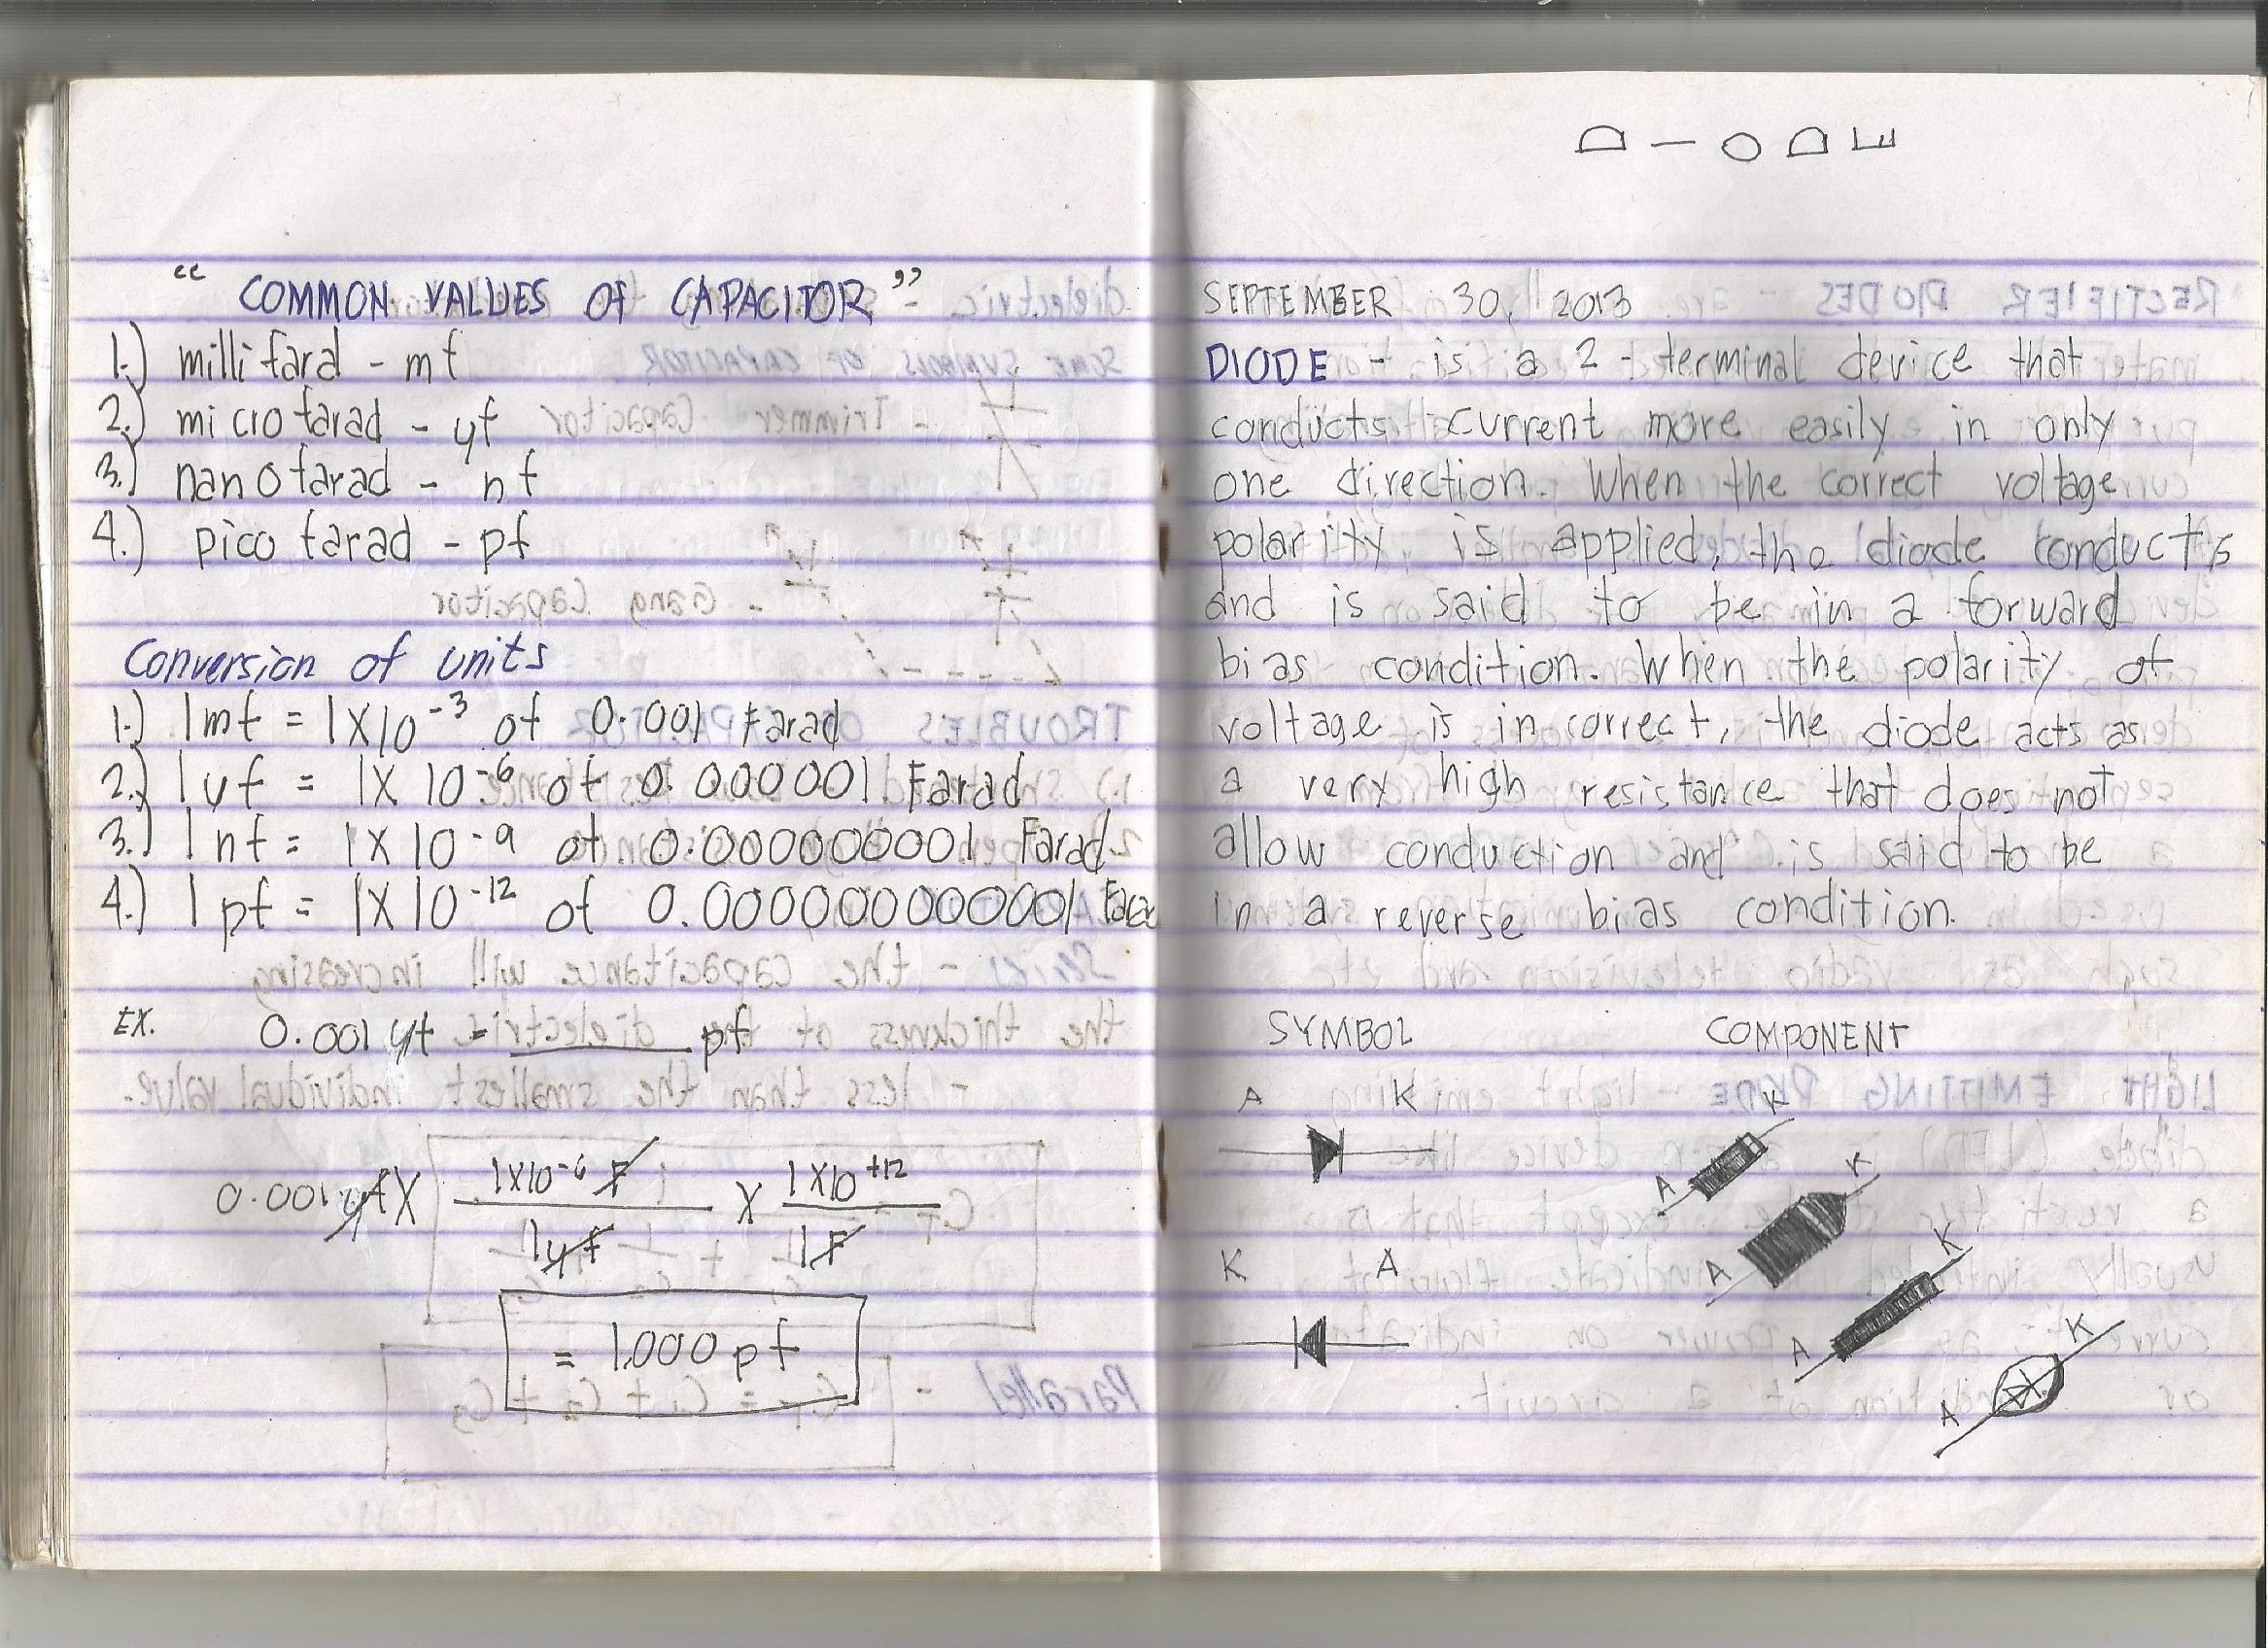 “ COMMON VALUES OF CAPACITOR ”
1.) milli farad - mf
2.) micro farad - yf
3.) nano farad - nf
4.) pico farad - pf
Conversion of units
1.) 1mf = 1X10-3 of 0.001 Farad
2.) 1yf = 1X 10-6 of 0.000001 Farad
3.) 1nf = 1X10-9 of 0.000000001 Farad
4.) 1pf = 1X10-12 of 0.000000000001 Farad
EX. 0.001 yf = ______ pf
0.001 yf X 1X10-6 F X 1X10+12
1yf 1F
= 1,000 pf
DIODE
SEPTEMBER 30, 2013
DIODE - is a 2 - terminal device that
conducts current more easily in only
one direction. When the correct voltage
polarity is applied, the diode conducts
and is said to be in a forward
bias condition. When the polarity of
voltage is in correct, the diode acts as
a very high resistance that does not
allow conduction and is said to be
in a reverse bias condition.
SYMBOL COMPONENT
A K
K A
A K
A K
A K
A K